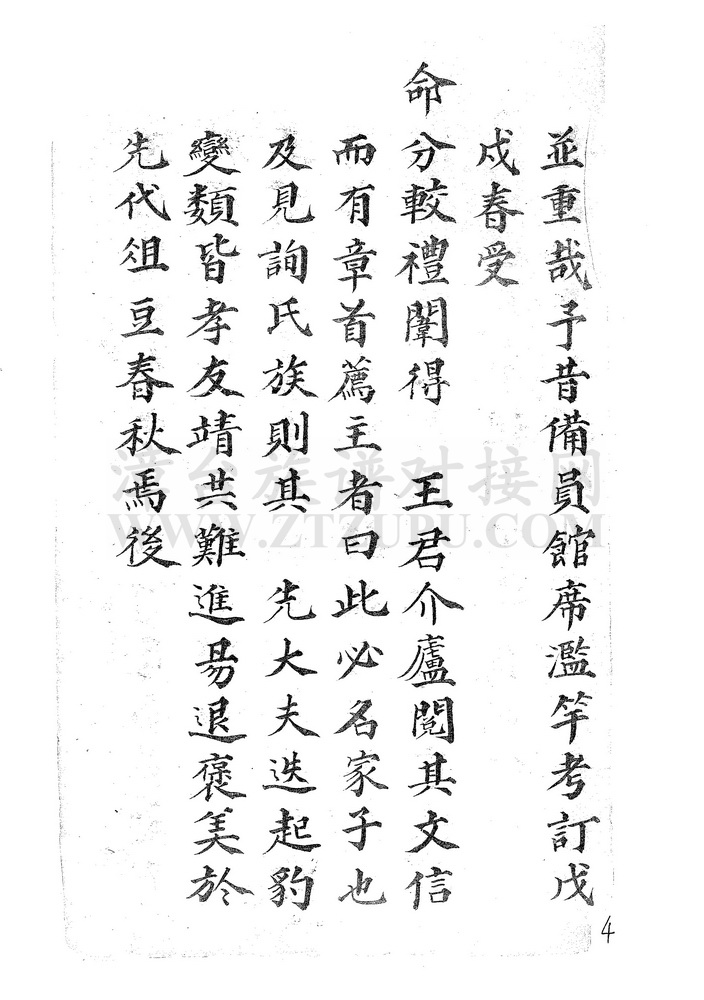 並重哉予昔備員館席濫竽考訂戊
戍春受
命分較禮闈得　王君介廬閱其文信
而有章首薦主者曰此必名家子也
及見詢氏族則其　先大夫迭起豹
變類皆孝友靖共難進易退褒美於
先代俎豆春秋焉後
漳台族谱对接网
WWW.ZTZUPU.COM
4